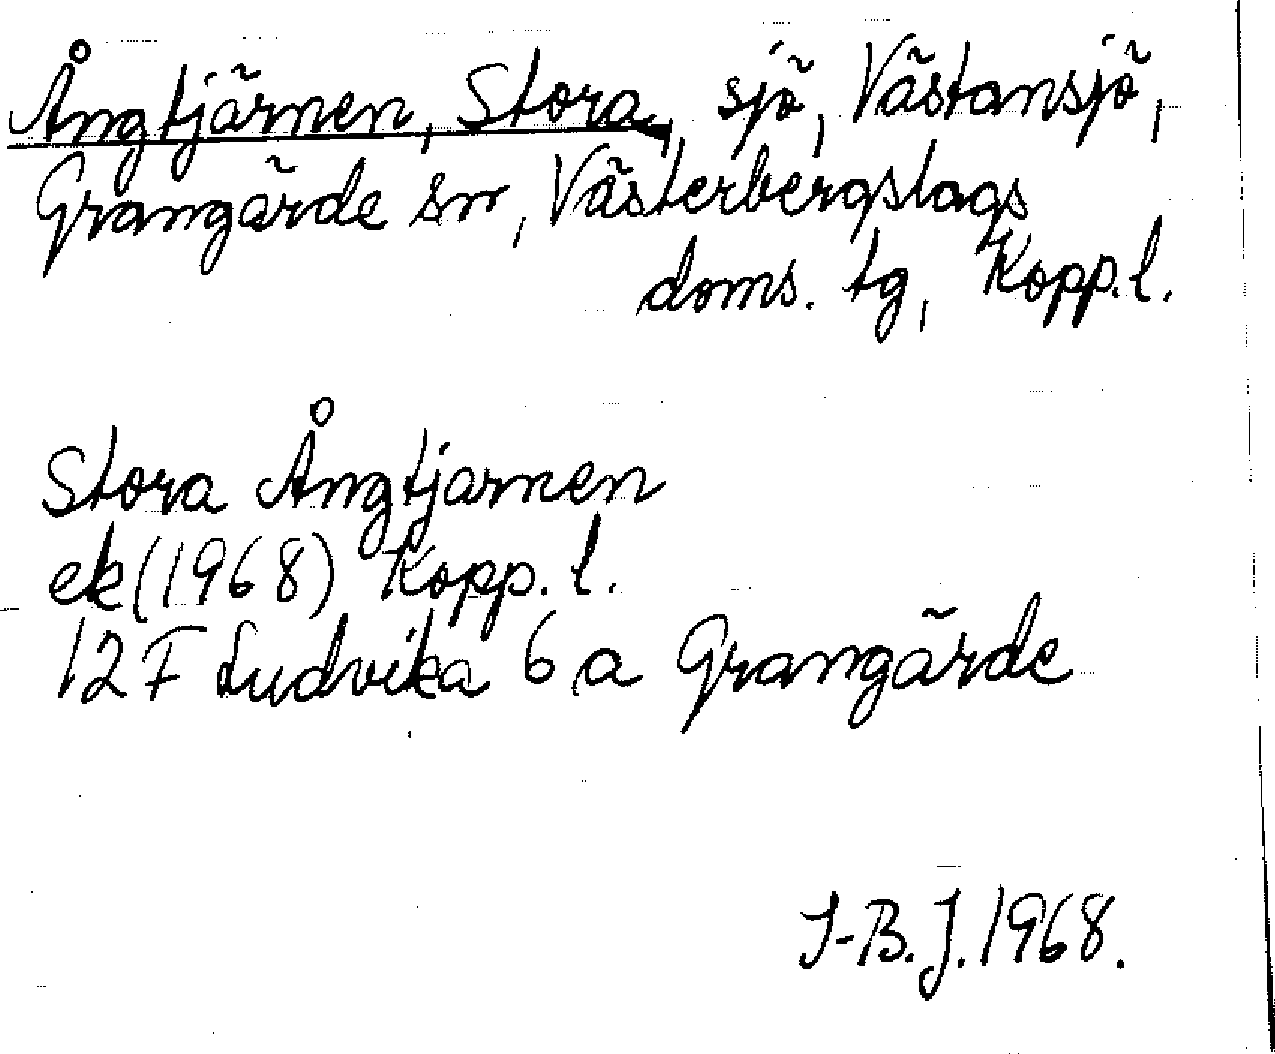 Ångtjärnen, Stora, sjö, Västansjö,
Grangärde sn, Västerbergslags
doms. tg, Kopp.l.
Stora Ångtjarnen
ek (1968) Kopp. l.
12 F Ludvika 6 a Grangärde
I-B.J. 1968.